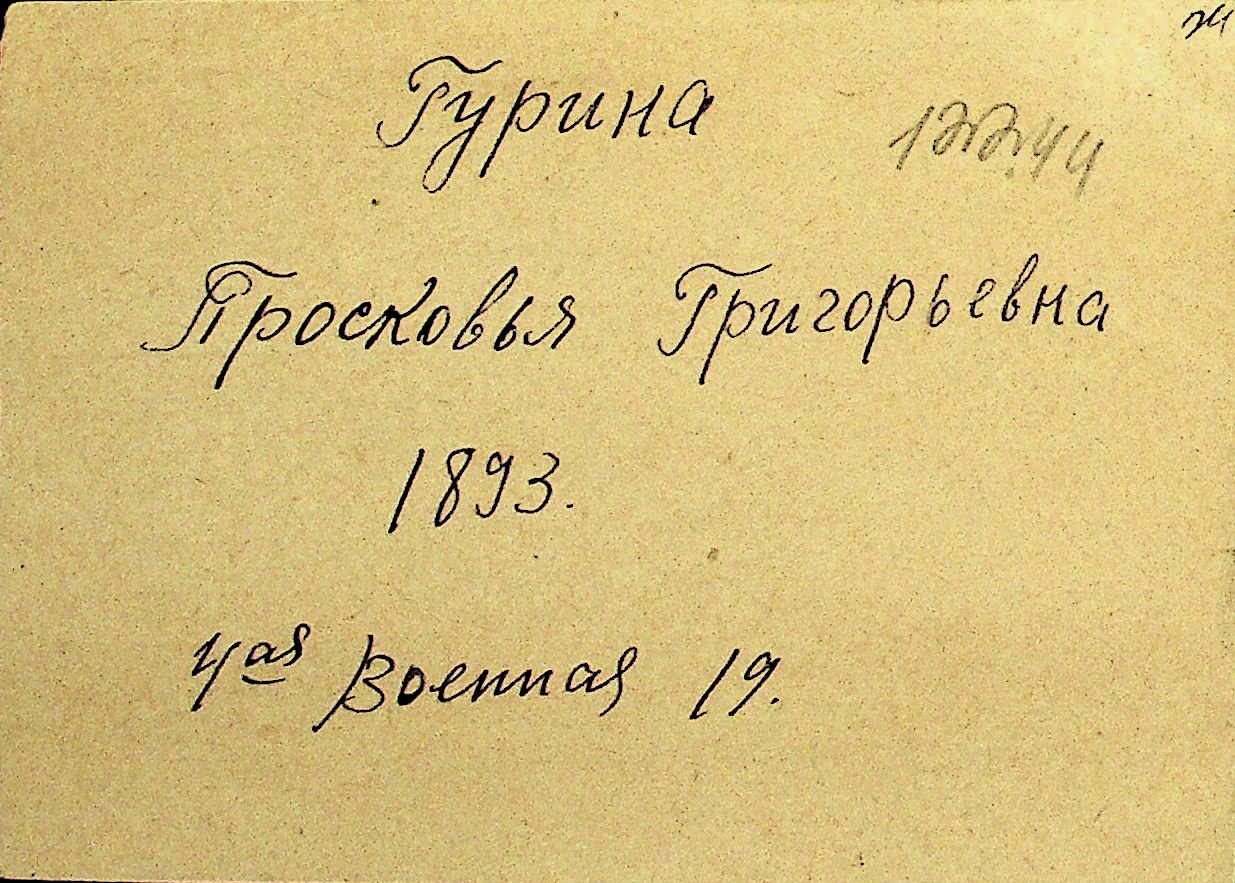 Гурина
Просковья Григорьевна
1893.
4ая Военная 19.